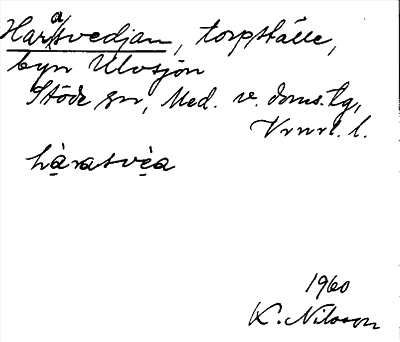 Haråsvedjan, torpställe,
byn Ulvsjön
Stöde sn, Med. v. doms. tg,
Vrnrl. l.
hàrasvèa
1960
K. Nilsson